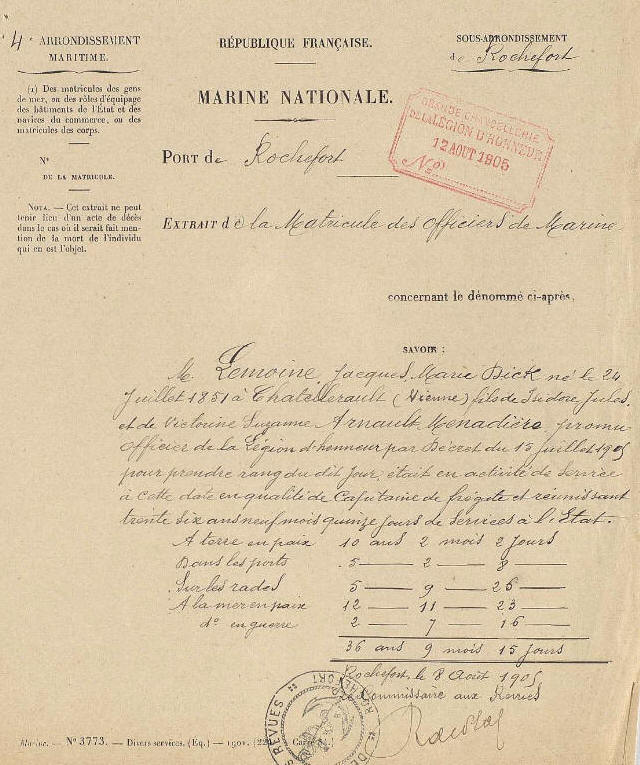 4e ARRONDISSEMENT
MARITIME.
(1) Des matricules des gens
de mer, ou des rôles d'équipage
des bâtiments de l'État et des
navires du commerce, ou des
matricules des corps.
N°
DE LA MATRICULE.
NOTA. — Cet extrait ne peut
tenir lieu d'un acte de décès
dans le cas où il serait fait men-
tion de la mort de l'individu
qui en est l'objet.
RÉPUBLIQUE FRANÇAISE.
MARINE NATIONALE.
SOUS-ARRONDISSEMENT
de Rochefort
GRANDE CHANCELLERIE
DE LA LÉGION D'HONNEUR
12 AOUT 1905
N°
PORT de Rochefort
EXTRAIT de la Matricule des Officiers de Marine
concernant le dénommé ci-après,
SAVOIR :
M. Lemoine, Jacques Marie Dick né le 24
Juillet 1851 à Chatellerault (Vienne) fils de Isidore Jules
et de Victorine Suzanne Arnault Menadière promu
Officier de la Légion d'honneur par Décret du 15 juillet 1905
pour prendre rang du dit Jour, était en activité de Service
à cette date en qualité de Capitaine de frégate et réunissant
trente six ans neuf mois quinze jours de Services à l'Etat.
A terre en paix 10 ans 2 mois 2 Jours
Dans les ports 5 — 2 — 8 —
Sur les rades 5 — 9 — 26 —
A la mer en paix 12 — 11 — 23 —
d° en guerre 2 — 7 — 16 —
36 ans 9 mois 15 jours
Rochefort, le 8 Août 1905
Le Commissaire aux Revues
REVUES
ROCHEFORT
Marine. — N° 3773. — Divers services. (Éq.) — 1901.